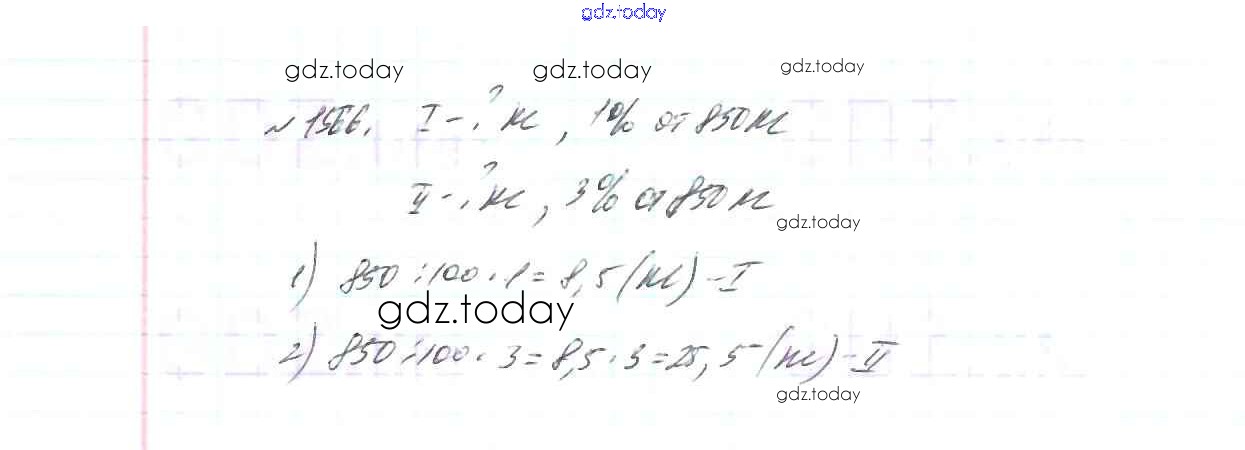 gdz.today
gdz.today gdz.today gdz.today
№1566. I - ? кг, 1% от 850 кг
II - ? кг, 3% от 850 кг
gdz.today
1) 850 : 100 · 1 = 8,5 (кг) - I
gdz.today
2) 850 : 100 · 3 = 8,5 · 3 = 25,5 (кг) - II
gdz.today